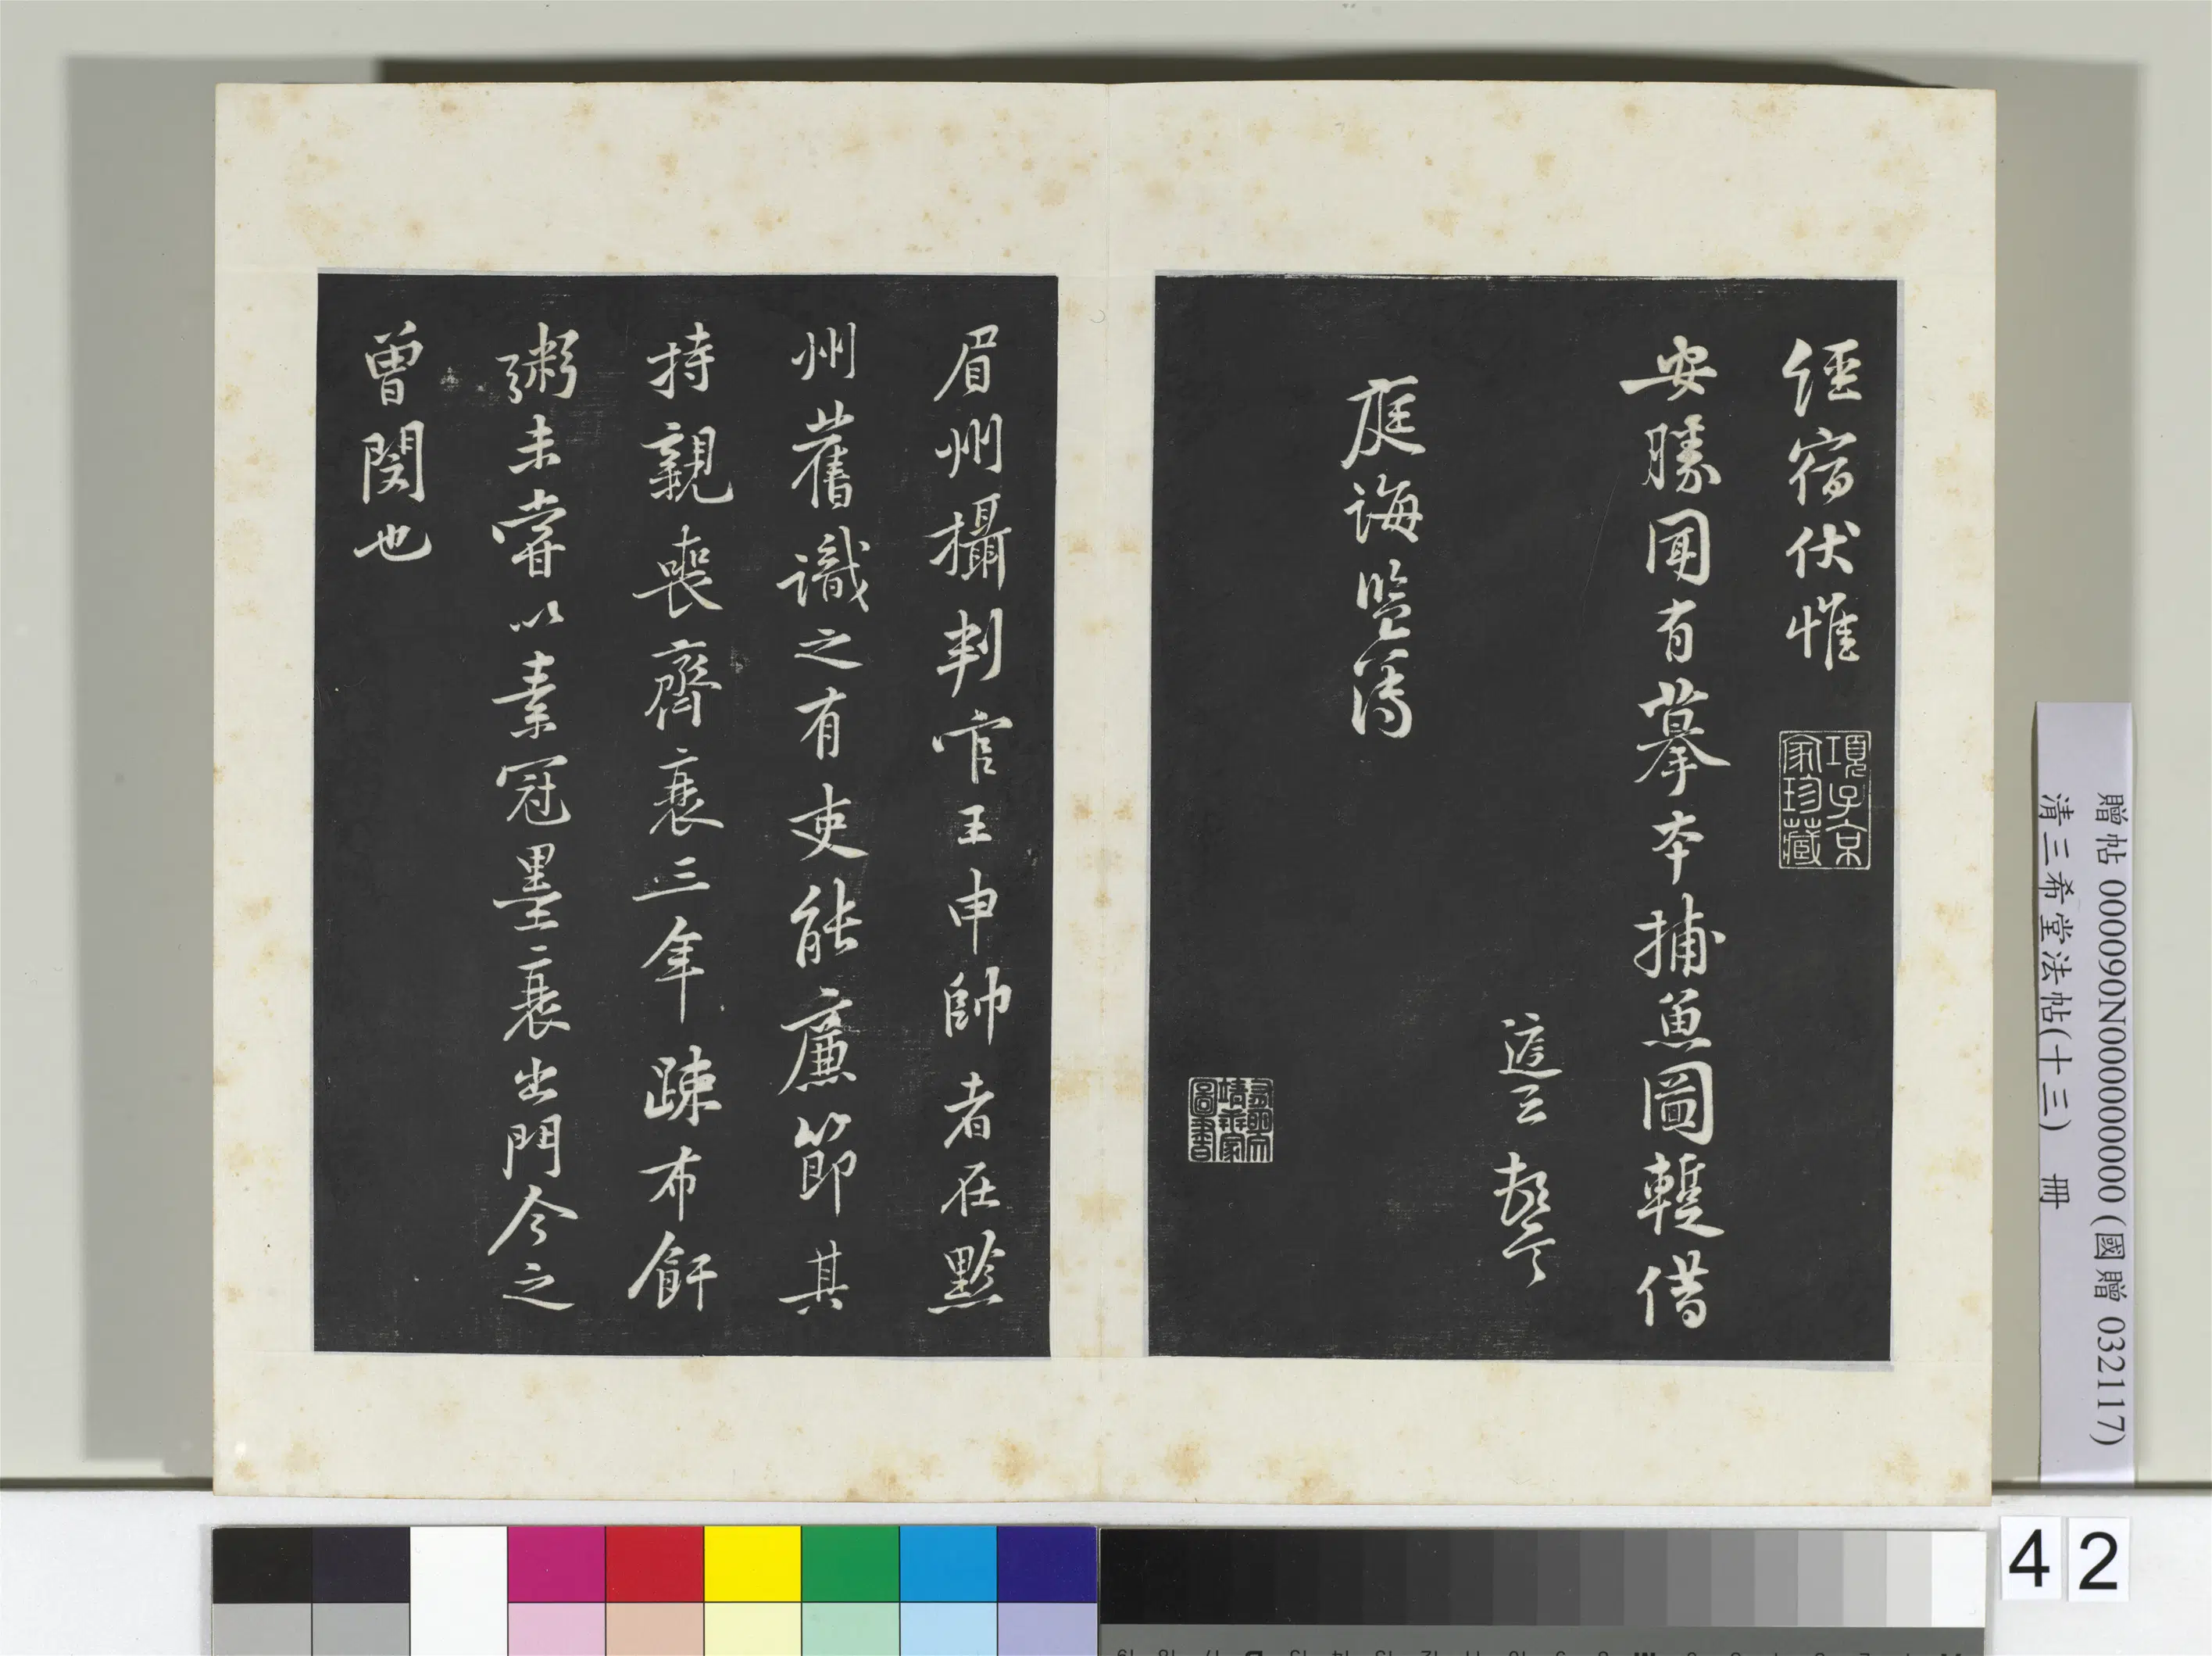 經宿伏惟
項子京
家珍藏
安勝聞有摹本捕魚圖輒借
庭誨監簿
眉州攝判官王申帥者在黔
州舊識之有吏能廉節其
持親喪齊衰三年踈布飦
粥未嘗以素冠墨衰出門今之
曾閔也
贈帖 000090N000000000 (國贈 032117)
清三希堂法帖(十三) 冊
42